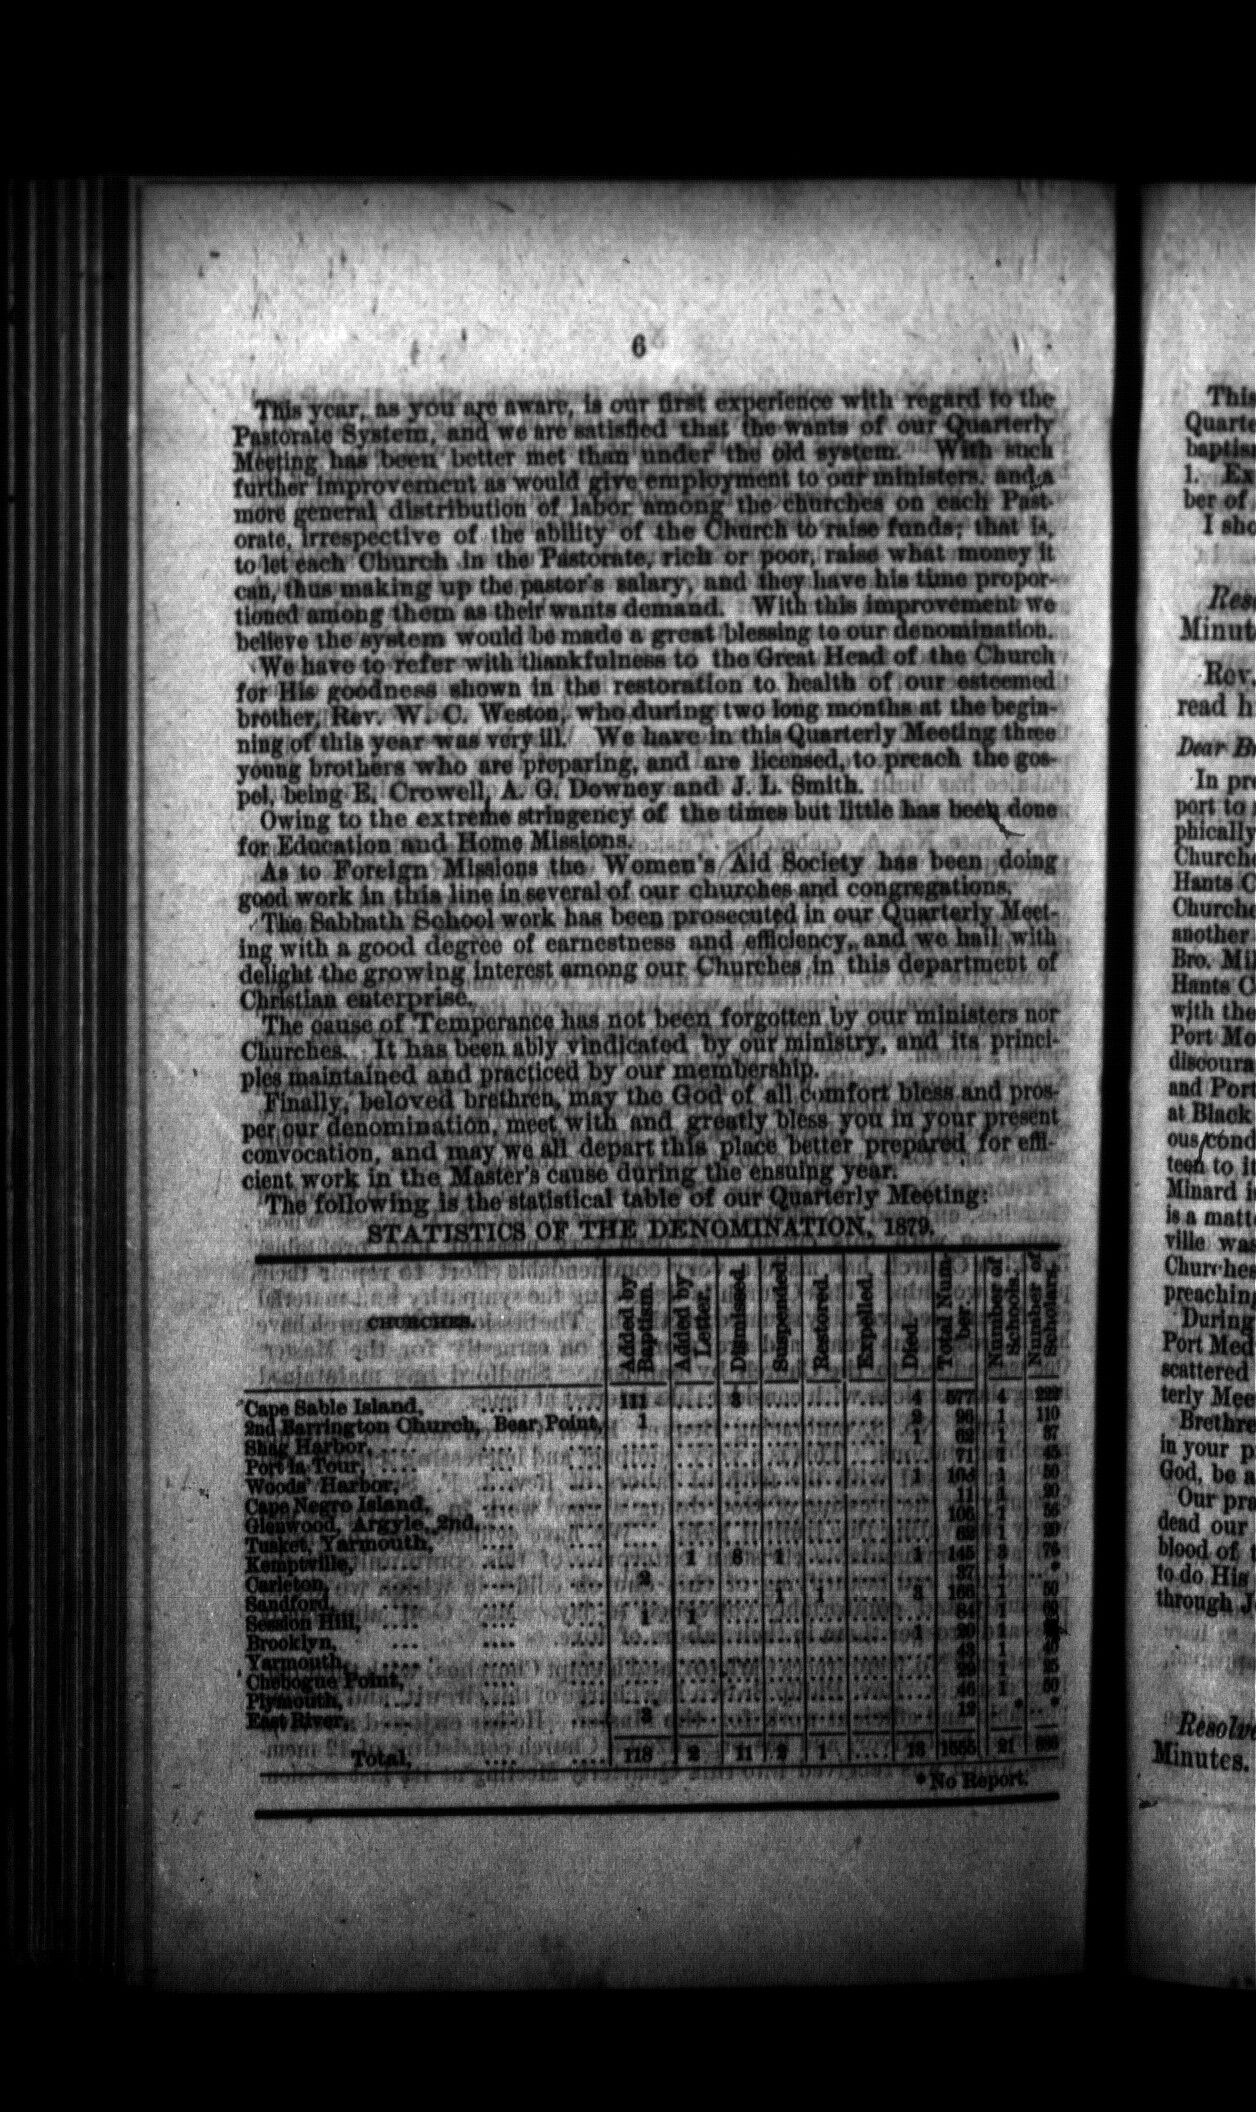 6
This year, as you are aware, is our first experience with regard to the
Pastorate System, and we are satisfied that the wants of our Quarterly
Meeting has been better met than under the old system. With such
further improvement as would give employment to our ministers, and a
more general distribution of labor among the churches on each Past-
orate, irrespective of the ability of the Church to raise funds; that is,
to let each Church in the Pastorate, rich or poor, raise what money it
can, thus making up the pastor's salary, and they have his time propor-
tioned among them as their wants demand. With this improvement we
believe the system would be made a great blessing to our denomination.
We have to refer with thankfulness to the Great Head of the Church
for His goodness shown in the restoration to health of our esteemed
brother, Rev. W. C. Weston, who during two long months at the begin-
ning of this year was very ill. We have in this Quarterly Meeting three
young brothers who are preparing, and are licensed, to preach the gos-
pel, being E. Crowell, A. G. Downey and J. L. Smith.
Owing to the extreme stringency of the times but little has been done
for Education and Home Missions.
As to Foreign Missions the Women's Aid Society has been doing
good work in this line in several of our churches and congregations.
The Sabbath School work has been prosecuted in our Quarterly Meet-
ing with a good degree of earnestness and efficiency, and we hail with
delight the growing interest among our Churches in this department of
Christian enterprise.
The cause of Temperance has not been forgotten by our ministers nor
Churches. It has been ably vindicated by our ministry, and its princi-
ples maintained and practiced by our membership.
Finally, beloved brethren, may the God of all comfort bless and pros-
per our denomination, meet with and greatly bless you in your present
convocation, and may we all depart this place better prepared for effi-
cient work in the Master's cause during the ensuing year.
The following is the statistical table of our Quarterly Meeting:
STATISTICS OF THE DENOMINATION, 1879.
CHURCHES. Added by Baptism. Added by Letter. Dismissed. Suspended. Restored. Expelled. Died. Total Number. Number of Schools. Number of Scholars.
Cape Sable Island, 111 3 4 577 4
2nd Barrington Church, Bear Point, 1 2 96 1 110
Shag Harbor, 1 62 1 37
Port la Tour, 71 45
Woods Harbor, 1 1 50
Cape Negro Island, 11
Glenwood, Argyle, 2nd,
Tusket, Yarmouth, 1
Kemptville, 1 8 1 1 145 3 75
Carleton, 2 37 1 *
Sandford, 1 1 3 1 50
Session Hill, 1 1 1
Brooklyn, 1 1
Yarmouth, 1
Chebogue Point, 1
Plymouth, 46 1 50
East River, 3 12 * *
Total, 118 2 11 2 1 21
* No Report.
This
Quarte
baptism
1. Ex
ber of
I sho
Minut
Rev.
read h
Dear B
In pre
port to
phically
Churche
Hants C
Churche
another
Bro. Mil
Hants C
with the
Port Mo
discoura
and Port
at Black
ous cond
teen to i
Minard i
is a matt
ville was
Churches
preaching
During
Port Med
scattered
terly Mee
Brethre
in your p
God, be a
Our pra
dead our
blood of
to do His
through J
Resolve
Minutes.